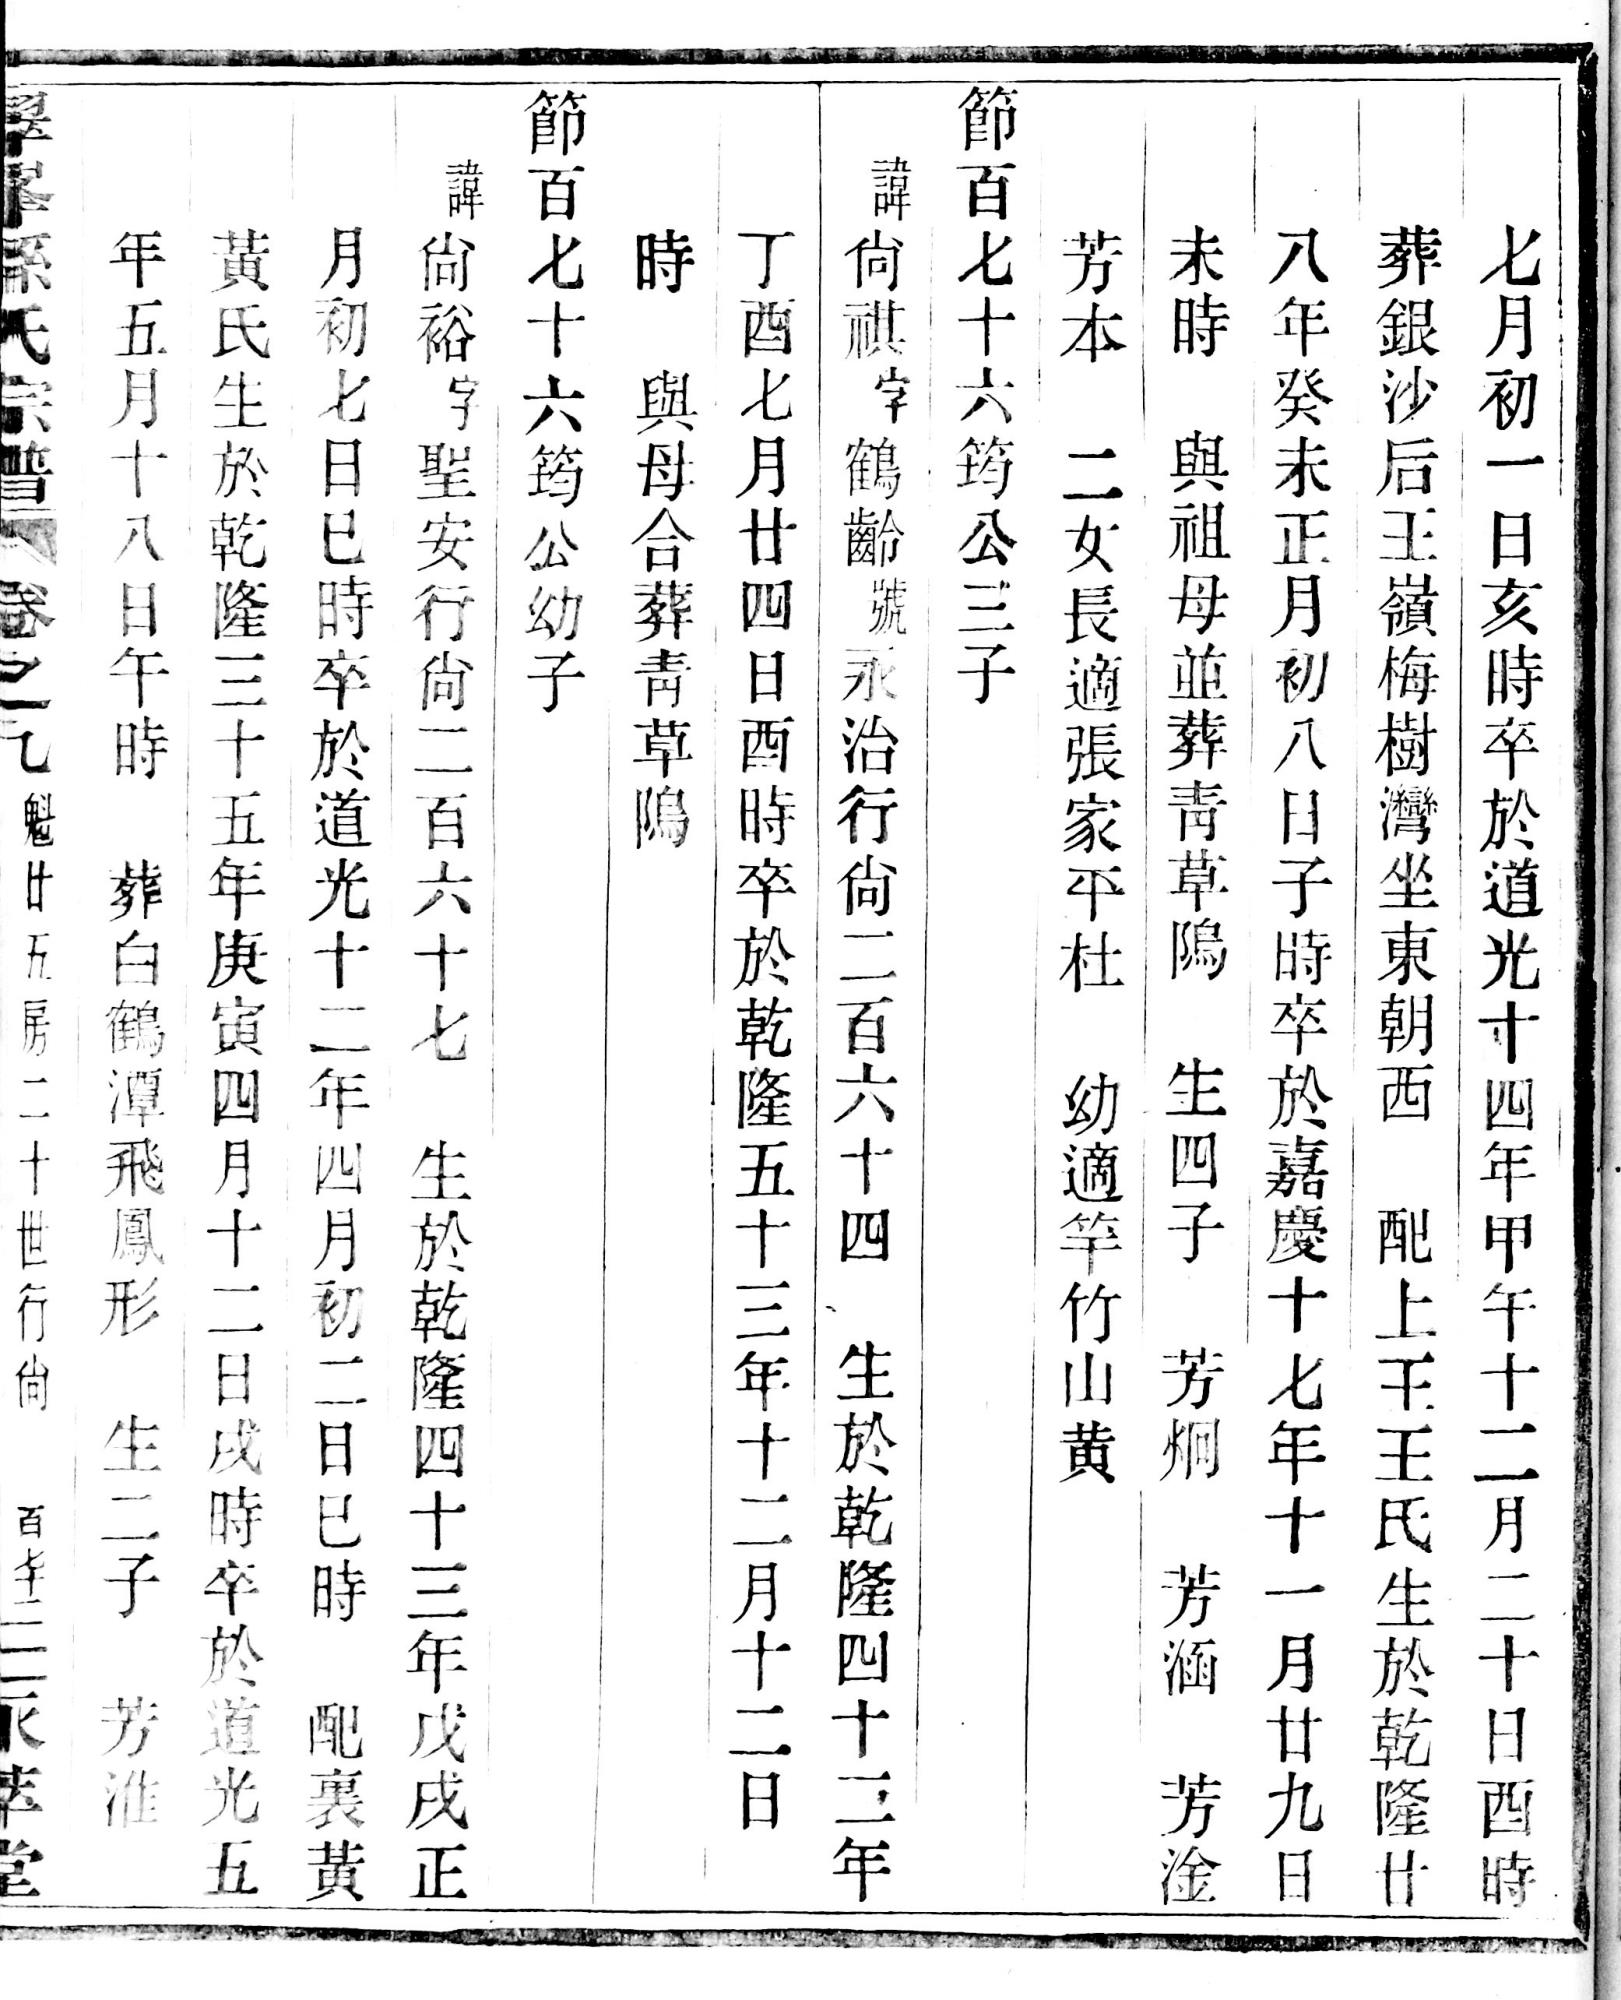 七月初一日亥時卒於道光十四年甲午十二月二十日酉時
葬銀沙后王嶺梅樹灣坐東朝西 配上王王氏生於乾隆廿
八年癸未正月初八日子時卒於嘉慶十七年十一月廿九日
未時 與祖母並葬青草隖 生四子 芳炯 芳涵 芳淦
芳本 二女長適張家平杜 幼適竿竹山黄
節百七十六筠公三子
諱尙祺字鶴齡號永治行尙二百六十四 生於乾隆四十二年
丁酉七月廿四日酉時卒於乾隆五十三年十二月十二日
時 與母合葬青草隖
節百七十六筠公幼子
諱尙裕字聖安行尙二百六十七 生於乾隆四十三年戊戌正
月初七日巳時卒於道光十二年四月初二日巳時 配裏黃
黃氏生於乾隆三十五年庚寅四月十二日戌時卒於道光五
年五月十八日午時 葬白鶴潭飛鳳形 生二子 芳淮
孫氏宗譜 卷之一乙 魁廿五房二十世行尙 百七十二 永萃堂